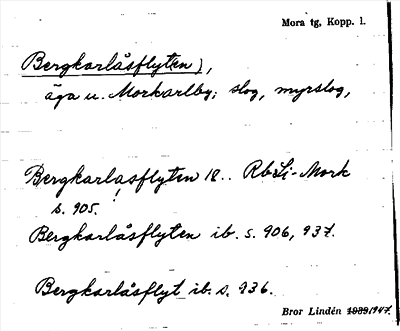 Mora tg, Kopp. l.
Bergkarlåsflyt(en),
äga u. Morkarlby; slog, myrslog,
Bergkarlasflyten 18.. RbSi-Mork
!
s. 905.
Bergkarlåsflyten ib. s. 906, 937.
Bergkarlåsflyt ib. s. 936.
Bror Lindén 1939 1947.